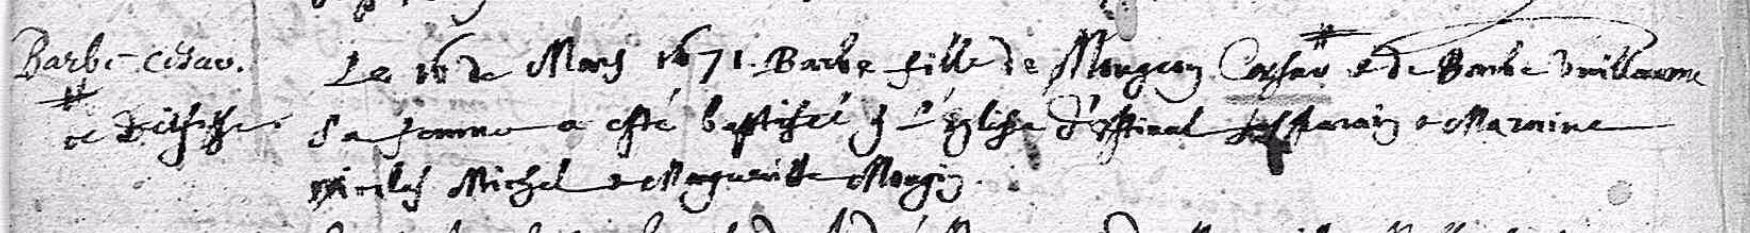 Barbe Cesar.
Le 16 de Mars 1671. Barbe fille de Mougeon Caesar & de Barbe Vuillaume
de
sa femme a esté baptisée en l'Eglise d'Espinal ses Parain & Maraine
Nicolas Michel & Margueritte Mougin.